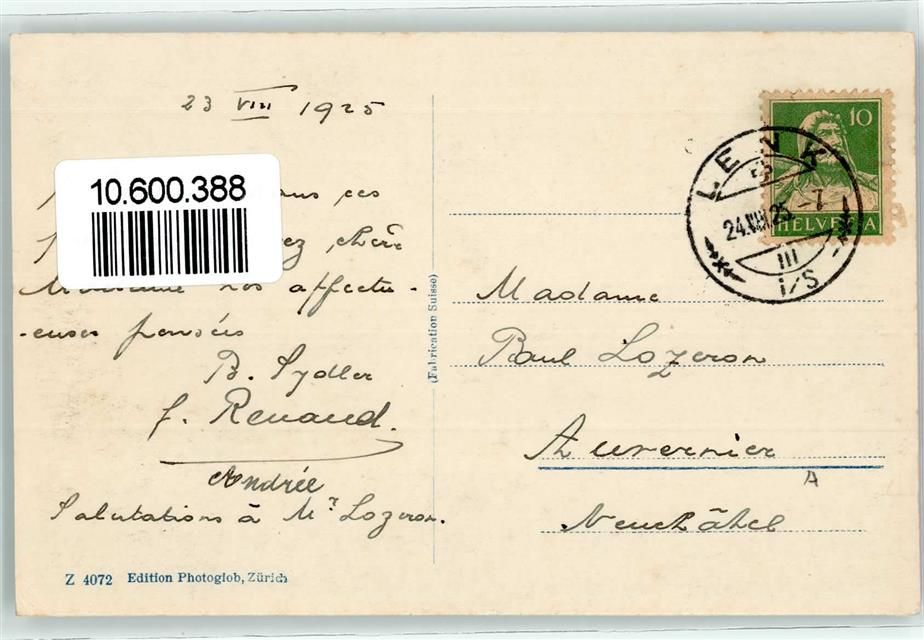 23 VIII 1925
10.600.388
ces
chère
Madame nos affectu-
-euses pensées
B. Sydler
f. Renaud.
Andrée
Salutations à Mr Lozeron.
Z 4072 Edition Photoglob, Zürich
(Fabrication Suisse)
10
HELVETIA
LENK
24.VIII.25.-7
III
i/S
Madame
Paul Lozeron
Auvernier
A
Neuchâtel